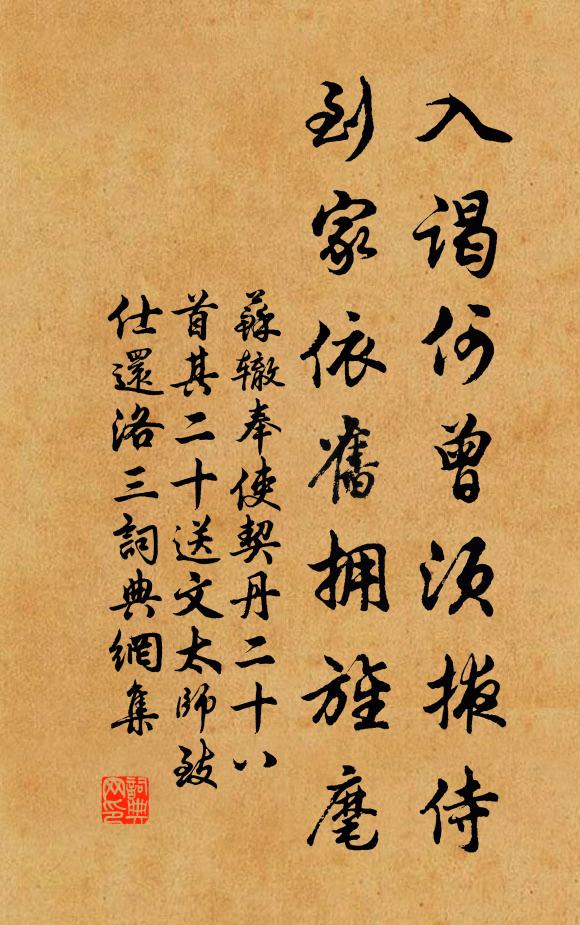 入謁何曾須掖侍
到家依舊拥旌麾
蘇辙奉使契丹二十八
首其二十送文太師致
仕還洛三詞典網集
詞典
网印